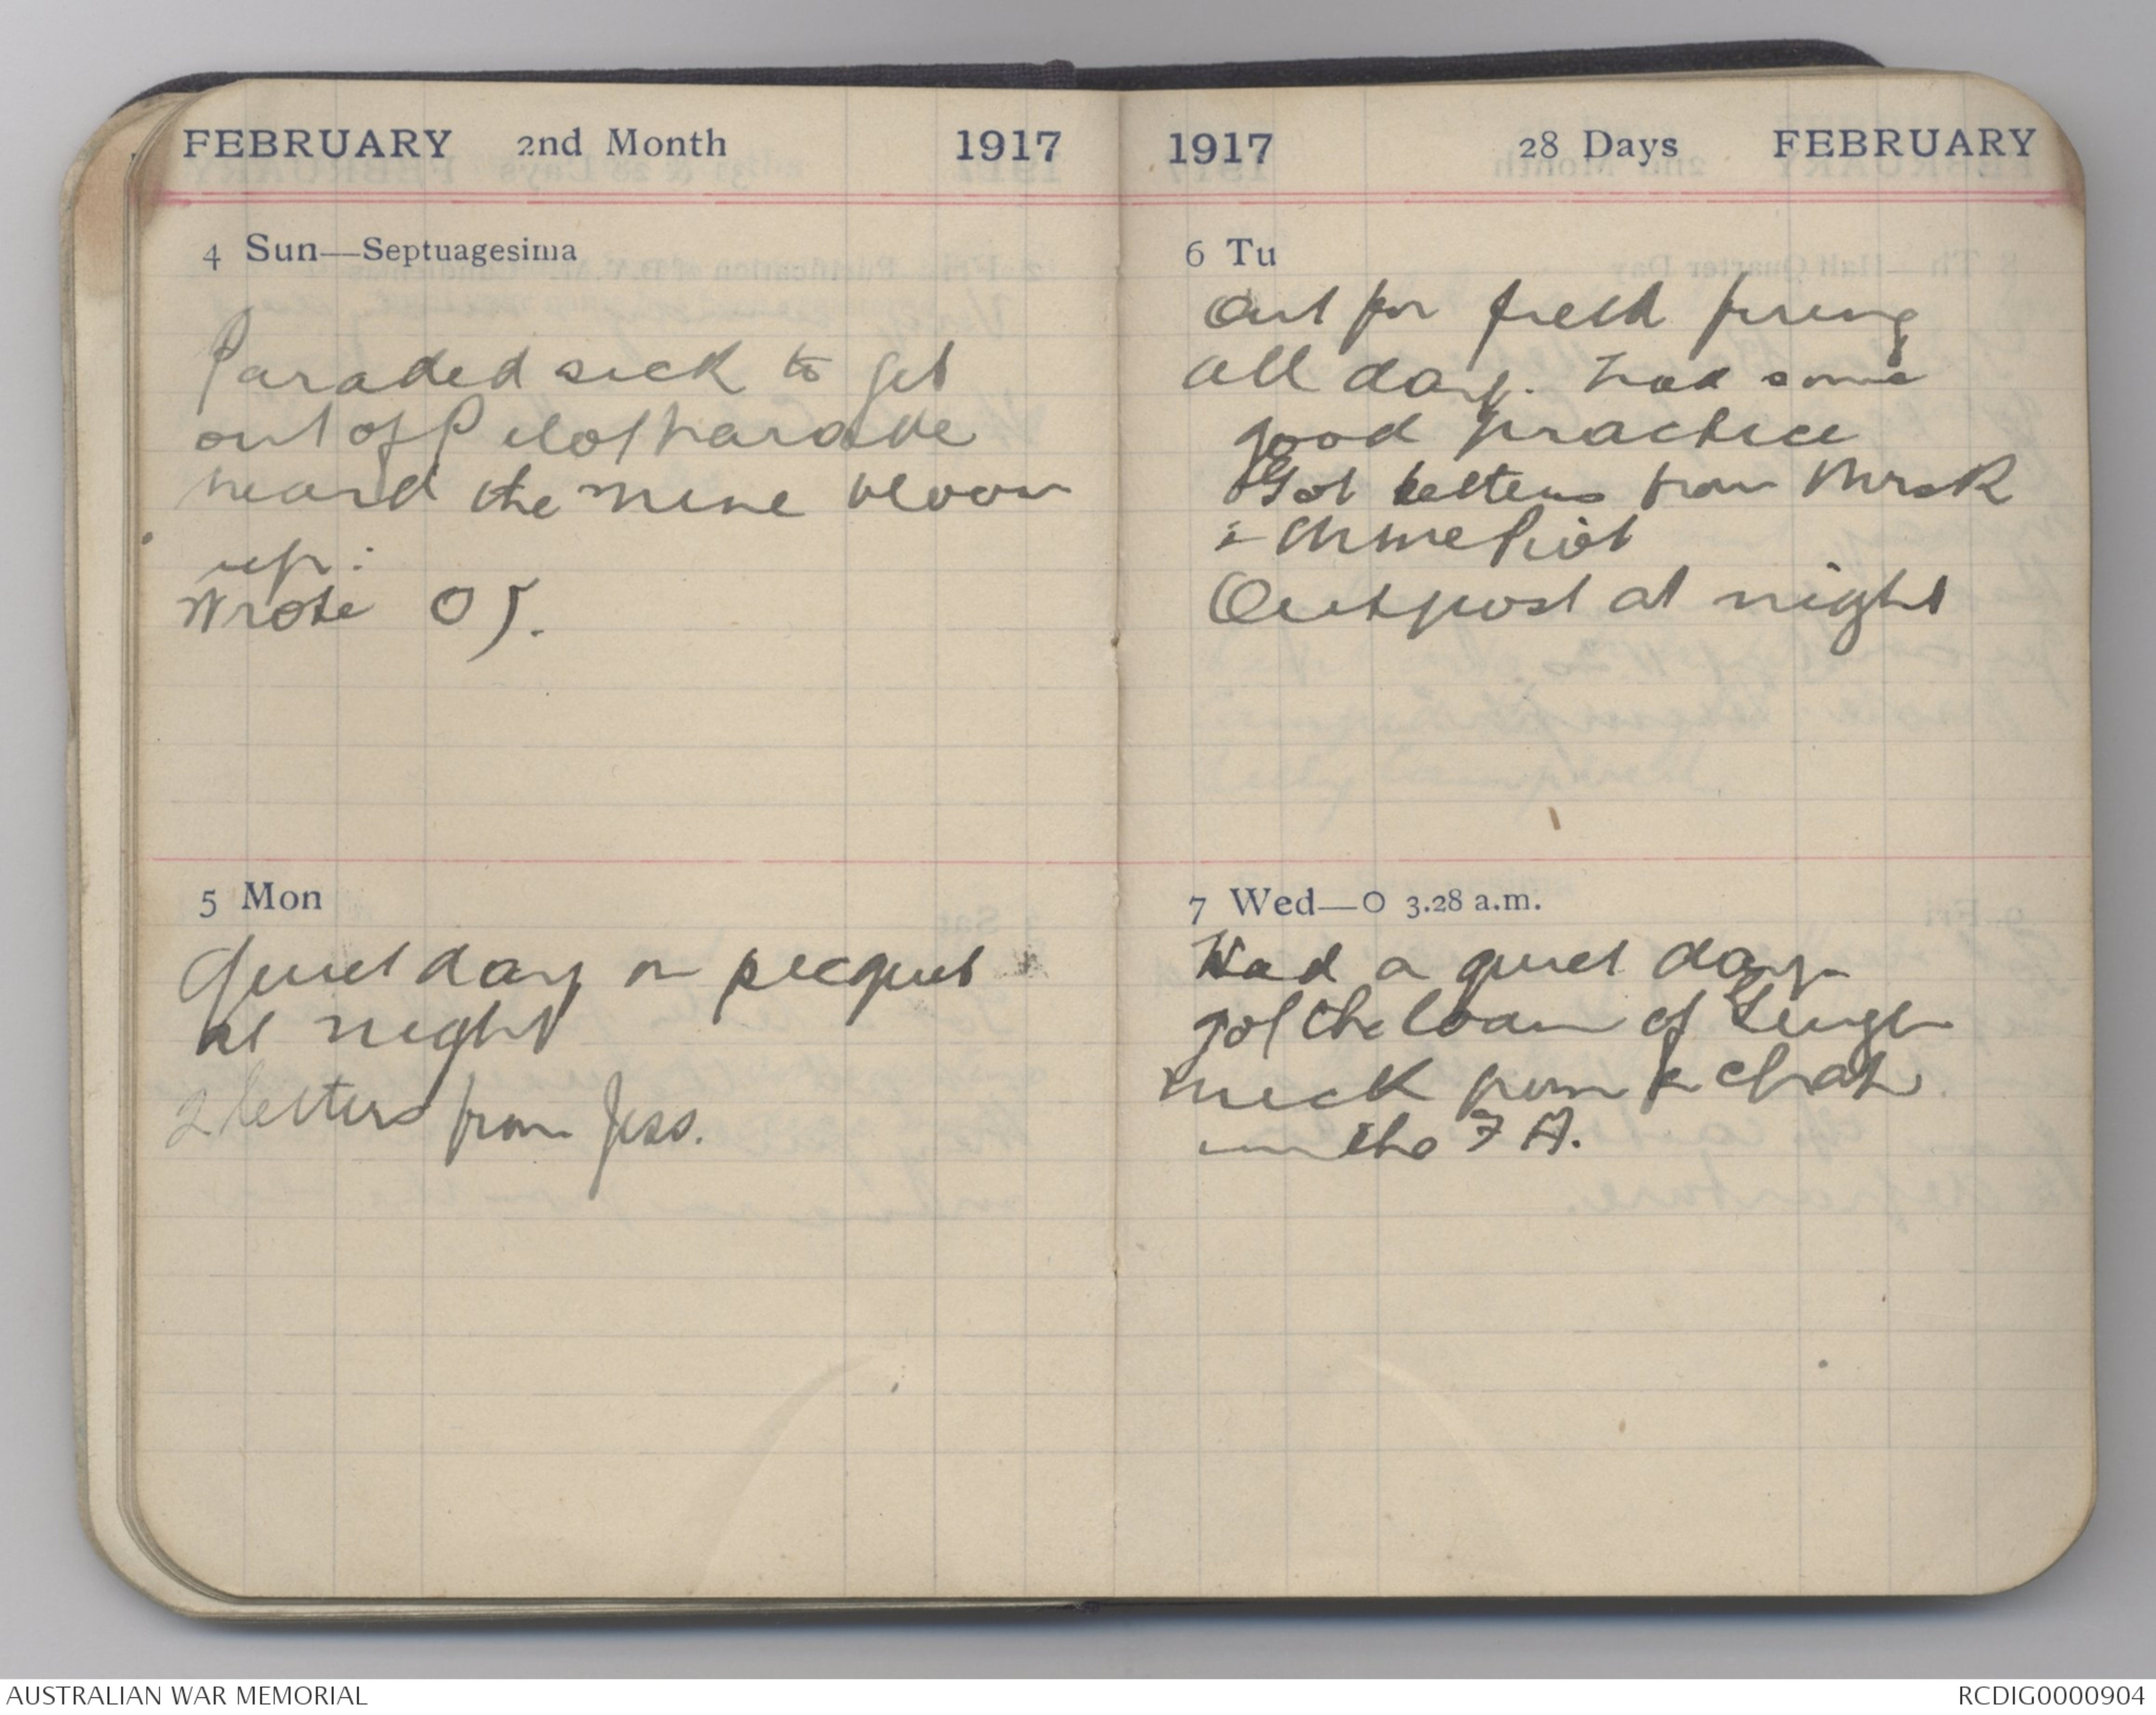 FEBRUARY 2nd Month 1917
4 Sun—Septuagesima
Paraded sick to get
out of Pilot parade
heard the mine bloom
up.
Wrote OJ.
5 Mon
Quiet day on picquet
at night
2 letters from Jess.
1917 28 Days FEBRUARY
6 Tu
Out for field firing
all day. Had some
good practice
Got letters from Mrs R
&
Outpost at night
7 Wed—O 3.28 a.m.
Had a quiet day
got the loan of
from a chap
in the F A.
AUSTRALIAN WAR MEMORIAL
RCDIG0000904